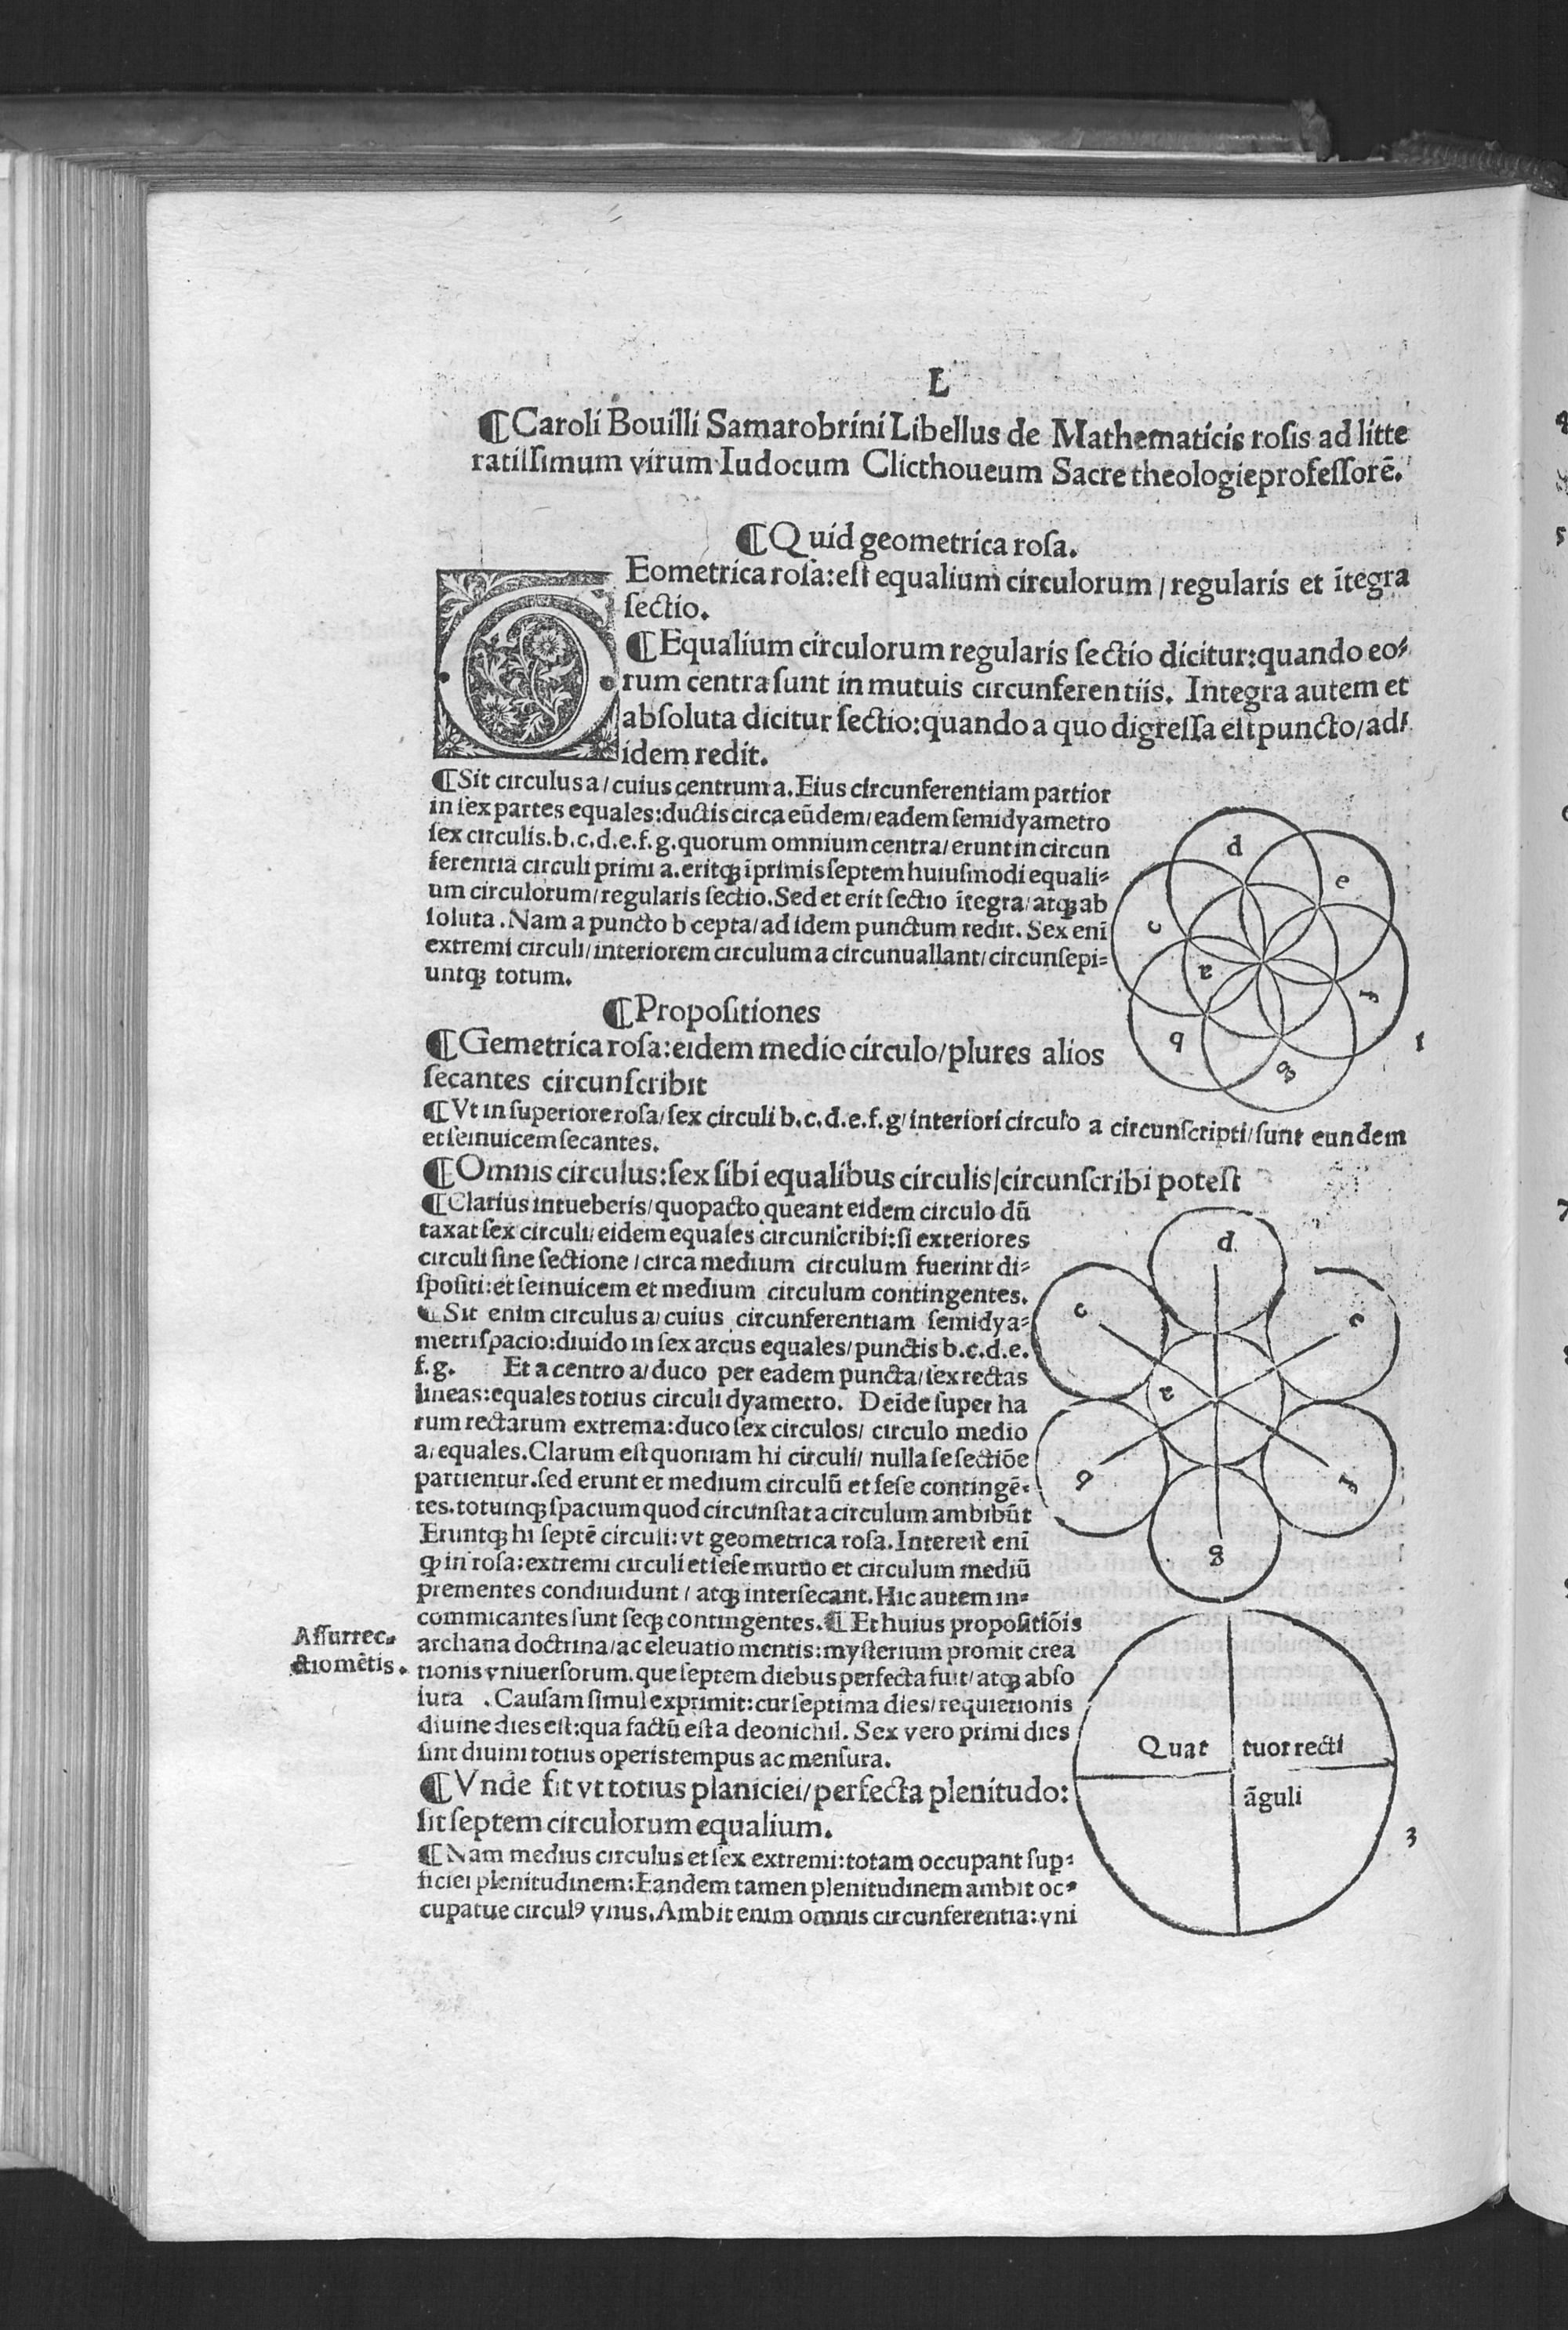 L
¶Caroli Bouilli Samarobrini Libellus de Mathematicis rosis ad litte
ratissimum virum Iudocum Clicthoueum Sacre theologie professorē.
¶Quid geometrica rosa.
GEometrica rosa: est equalium circulorum / regularis et ītegra
sectio.
¶Equalium circulorum regularis sectio dicitur: quando eo⸗
rum centra sunt in mutuis circunferentiis. Integra autem et
absoluta dicitur sectio: quando a quo digressa est puncto / ad⸗
idem redit.
¶Sit circulus a / cuius centrum a. Eius circunferentiam partior
in sex partes equales: ductis circa eūdem / eadem semidyametro
sex circulis. b.c.d.e.f.g. quorum omnium centra / erunt in circun
ferentia circuli primi a. eritqꝫ īprimis septem huiusmodi equali⸗
um circulorum / regularis sectio. Sed et erit sectio ītegra / atqꝫ ab
soluta. Nam a puncto b cepta / ad idem punctum redit. Sex enī
extremi circuli / interiorem circulum a circunuallant / circunsepi⸗
untqꝫ totum.
d
e
c
a
f
b
g
1
¶Propositiones
¶Gemetrica rosa: eidem medio circulo / plures alios
secantes circunscribit
¶Vt in superiore rosa / sex circuli b.c.d.e.f.g / interiori circulo a circunscripti / sunt eundem
et seinuicem secantes.
¶Omnis circulus: sex sibi equalibus circulis / circunscribi potest
¶Clarius intueberis / quopacto queant eidem circulo dū
taxat sex circuli / eidem equales circunscribi: si exteriores
circuli sine sectione / circa medium circulum fuerint di⸗
spositi: et seinuicem et medium circulum contingentes.
¶Sit enim circulus a / cuius circunferentiam semidya⸗
metri spacio: diuido in sex arcus equales / punctis b.c.d.e.
f.g. Et a centro a / duco per eadem puncta / sex rectas
lineas: equales totius circuli dyametro. Deīde super ha
rum rectarum extrema: duco sex circulos / circulo medio
a / equales. Clarum est quoniam hi circuli / nulla se sectiōe
partientur. sed erunt et medium circulū et sese contingē⸗
tes. totumqꝫ spacium quod circunstat a circulum ambibūt
Eruntqꝫ hi septē circuli: vt geometrica rosa. Interest enī
qꝫ in rosa: extremi circuli et sese mutuo et circulum mediū
prementes condiuidunt / atqꝫ intersecant. Hic autem in⸗
commicantes sunt seqꝫ contingentes. ¶Et huius propositiōis
archana doctrina / ac eleuatio mentis: mysterium promit crea
tionis vniuersorum. que septem diebus perfecta fuit / atqꝫ abso
luta . Causam simul exprimit: cur septima dies / requietionis
diuine dies est: qua factū est a deo nichil. Sex vero primi dies
sint diuini totius operis tempus ac mensura.
Assurrec⸗
ctio mētis.
d
c
e
a
b
f
g
¶Vnde fit vt totius planiciei / perfecta plenitudo:
sit septem circulorum equalium.
¶Nam medius circulus et sex extremi: totam occupant sup⸗
ficiei plenitudinem: Eandem tamen plenitudinem ambit oc⸗
cupatue circulꝰ vnus. Ambit enim omnis circunferentia: vni
Quat tuor recti
āguli
3